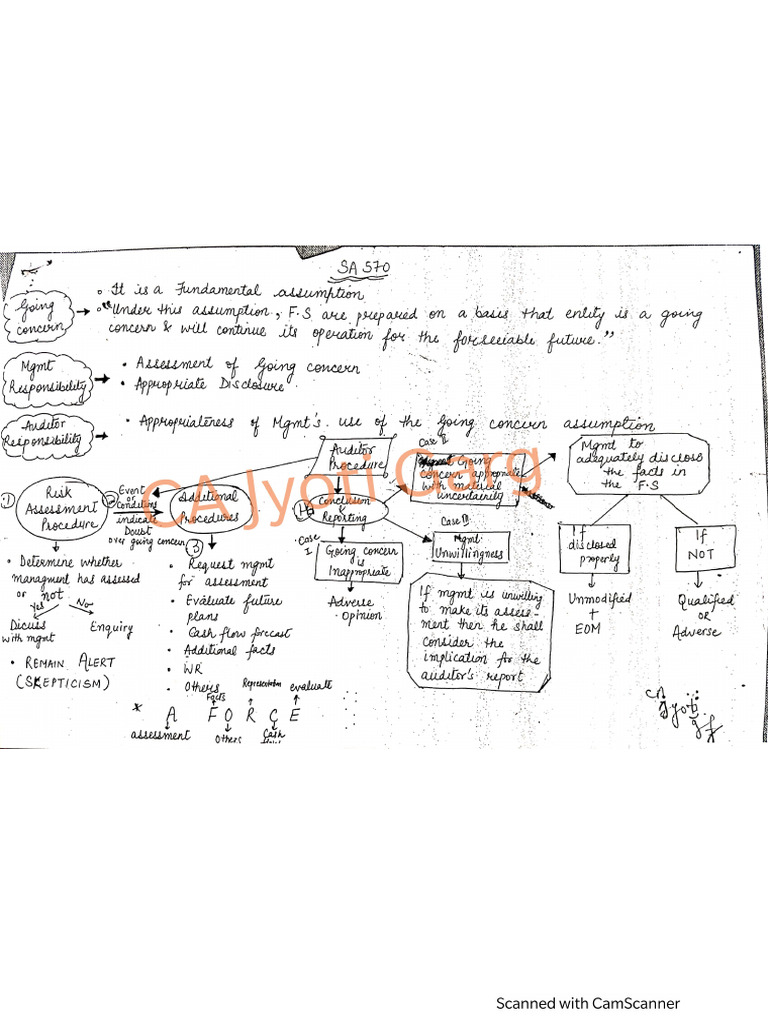 SA 570
Going concern
• It is a Fundamental assumption
• "Under this assumption, F.S are prepared on a basis that entity is a going
concern & will continue its operation for the forseeiable future."
Mgmt Responsibility
• Assessment of Going concern
• Appropriate Disclosure
Auditor Responsibility
• Appropriateness of Mgmt's use of the Going concern assumption
Auditor
Procedure
① Risk
Assessment
Procedure
• Determine whether
managment has assessed
or not
Yes
No
Dicuss
with mgmt
Enquiry
• REMAIN ALERT
(SKEPTICISM)
②
Event
or
Conditions
indicate
Doubt
over going concern
Additional
Procedures
③
• Request mgmt
for assessment
• Evaluate future
plans
• Cash flow forcast
• Additional facts
• WR
• Others
Facts
Representation
evaluate
* A F O R C E
assessment
Others
Cash
Conclusion
&
Reporting
Case
I
Going concern
is
Inappropriate
Adverse
Opinion
Case II
Going
concern appropriate
with material
uncertainity
Mgmt to
adequately disclose
the facts in
the F.S
If
disclosed
properly
Unmodified
+
EOM
If
NOT
Qualified
OR
Adverse
Case III
Mgmt
Unwillingness
If mgmt is unwilling
to make its assess-
ment then he shall
consider the
implication for the
auditor's report
CA Jyoti Garg
Jyoti
Scanned with CamScanner